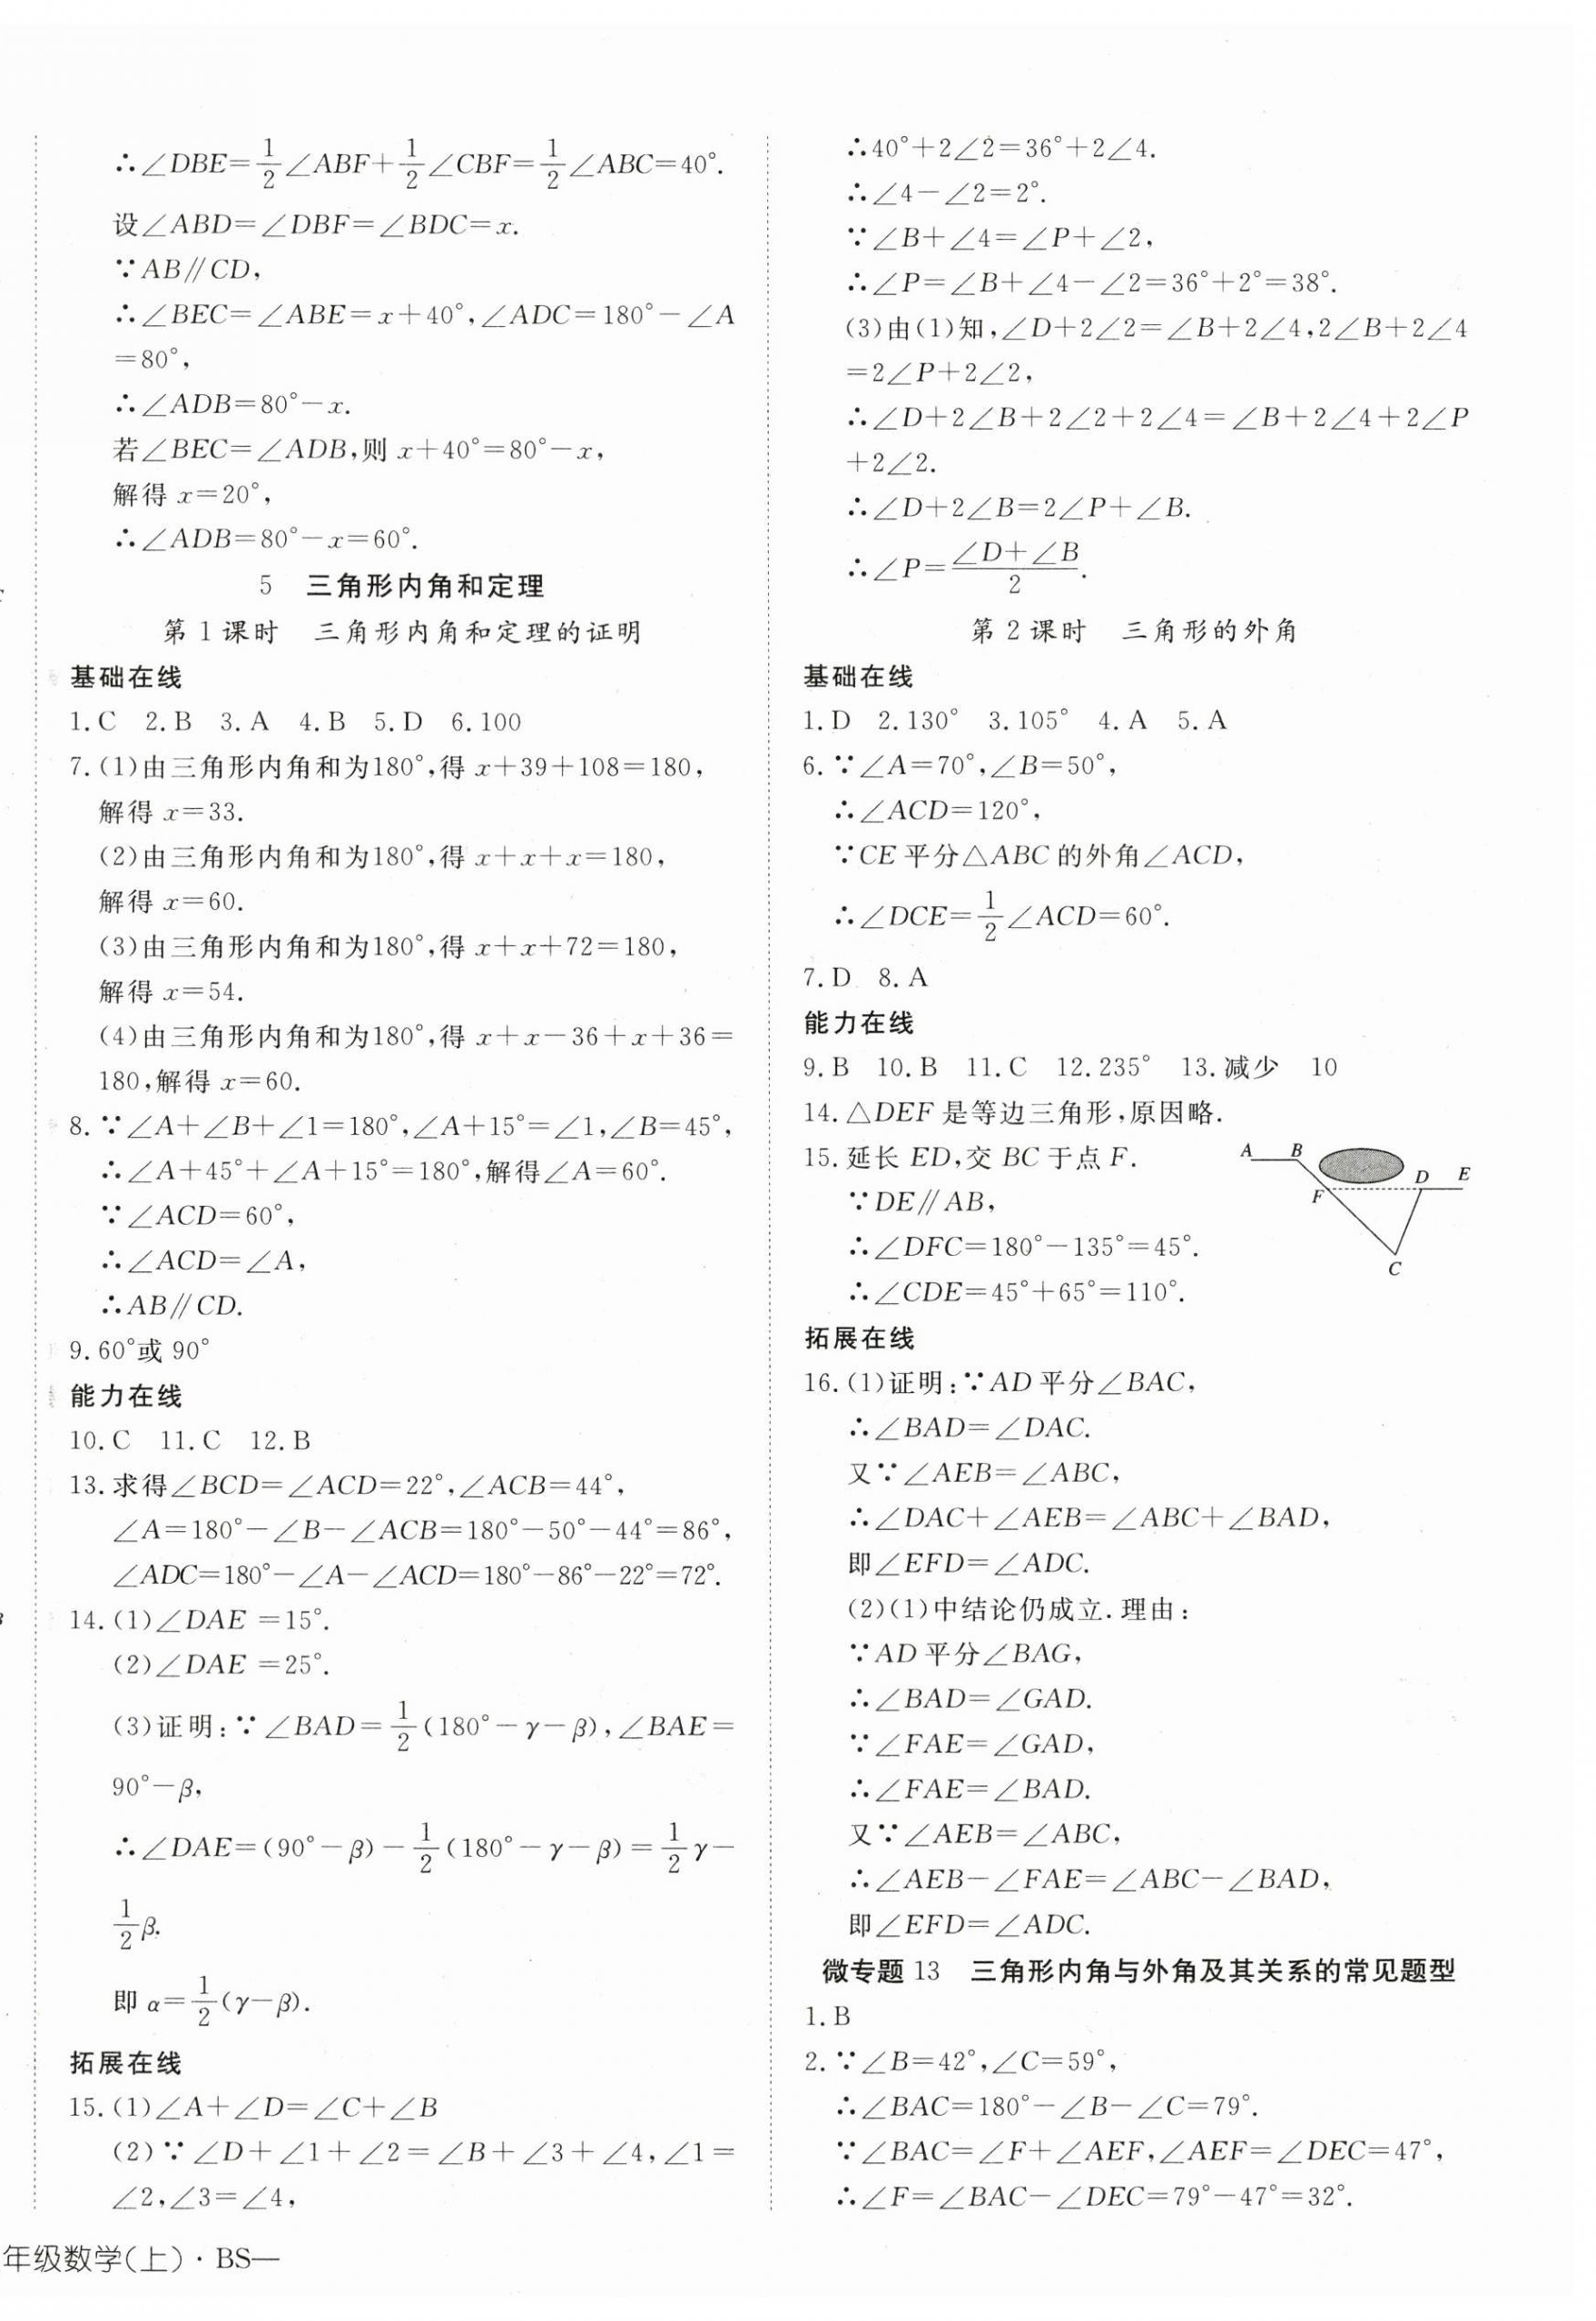 ∴∠DBE=1/2∠ABF+1/2∠CBF=1/2∠ABC=40°.
设∠ABD=∠DBF=∠BDC=x.
∵AB∥CD,
∴∠BEC=∠ABE=x+40°,∠ADC=180°-∠A
=80°,
∴∠ADB=80°-x.
若∠BEC=∠ADB,则 x+40°=80°-x,
解得 x=20°,
∴∠ADB=80°-x=60°.
5 三角形内角和定理
第 1 课时 三角形内角和定理的证明
基础在线
1.C 2.B 3.A 4.B 5.D 6.100
7.(1)由三角形内角和为180°,得 x+39+108=180,
解得 x=33.
(2)由三角形内角和为180°,得 x+x+x=180,
解得 x=60.
(3)由三角形内角和为180°,得 x+x+72=180,
解得 x=54.
(4)由三角形内角和为180°,得 x+x-36+x+36=
180,解得 x=60.
8.∵∠A+∠B+∠1=180°,∠A+15°=∠1,∠B=45°,
∴∠A+45°+∠A+15°=180°,解得∠A=60°.
∵∠ACD=60°,
∴∠ACD=∠A,
∴AB∥CD.
9.60°或 90°
能力在线
10.C 11.C 12.B
13.求得∠BCD=∠ACD=22°,∠ACB=44°,
∠A=180°-∠B-∠ACB=180°-50°-44°=86°,
∠ADC=180°-∠A-∠ACD=180°-86°-22°=72°.
14.(1)∠DAE =15°.
(2)∠DAE =25°.
(3)证明:∵∠BAD=1/2(180°-γ-β),∠BAE=
90°-β,
∴∠DAE=(90°-β)-1/2(180°-γ-β)=1/2γ-
1/2β.
即 α=1/2(γ-β).
拓展在线
15.(1)∠A+∠D=∠C+∠B
(2)∵∠D+∠1+∠2=∠B+∠3+∠4,∠1=
∠2,∠3=∠4,
年级数学(上)·BS—
∴40°+2∠2=36°+2∠4.
∴∠4-∠2=2°.
∵∠B+∠4=∠P+∠2,
∴∠P=∠B+∠4-∠2=36°+2°=38°.
(3)由(1)知,∠D+2∠2=∠B+2∠4,2∠B+2∠4
=2∠P+2∠2,
∴∠D+2∠B+2∠2+2∠4=∠B+2∠4+2∠P
+2∠2.
∴∠D+2∠B=2∠P+∠B.
∴∠P=(∠D+∠B)/2.
第 2 课时 三角形的外角
基础在线
1.D 2.130° 3.105° 4.A 5.A
6.∵∠A=70°,∠B=50°,
∴∠ACD=120°,
∵CE 平分△ABC 的外角∠ACD,
∴∠DCE=1/2∠ACD=60°.
7.D 8.A
能力在线
9.B 10.B 11.C 12.235° 13.减少 10
14.△DEF 是等边三角形,原因略.
15.延长 ED,交 BC 于点 F.
A B D E F C
∵DE∥AB,
∴∠DFC=180°-135°=45°.
∴∠CDE=45°+65°=110°.
拓展在线
16.(1)证明:∵AD 平分∠BAC,
∴∠BAD=∠DAC.
又∵∠AEB=∠ABC,
∴∠DAC+∠AEB=∠ABC+∠BAD,
即∠EFD=∠ADC.
(2)(1)中结论仍成立.理由:
∵AD 平分∠BAG,
∴∠BAD=∠GAD.
∵∠FAE=∠GAD,
∴∠FAE=∠BAD.
又∵∠AEB=∠ABC,
∴∠AEB-∠FAE=∠ABC-∠BAD,
即∠EFD=∠ADC.
微专题 13 三角形内角与外角及其关系的常见题型
1.B
2.∵∠B=42°,∠C=59°,
∴∠BAC=180°-∠B-∠C=79°.
∵∠BAC=∠F+∠AEF,∠AEF=∠DEC=47°,
∴∠F=∠BAC-∠DEC=79°-47°=32°.